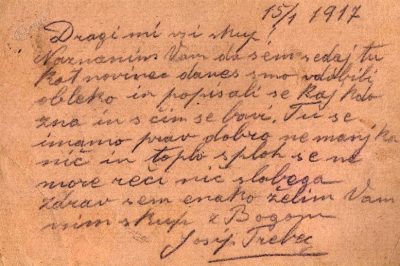 15/1 1917
Dragi mi vsi skup!
Naznanim Vam da sem sedaj tu
kot novinec danes smo vdobili
obleko in popisali se kaj kdo
zna in s čim se bavi. Tu se
imamo prav dobro ne manjka
nič in toplo sploh se ne
more reči nič slabega
zdrav sem enako želim Vam
vsim skup z Bogom
Josip